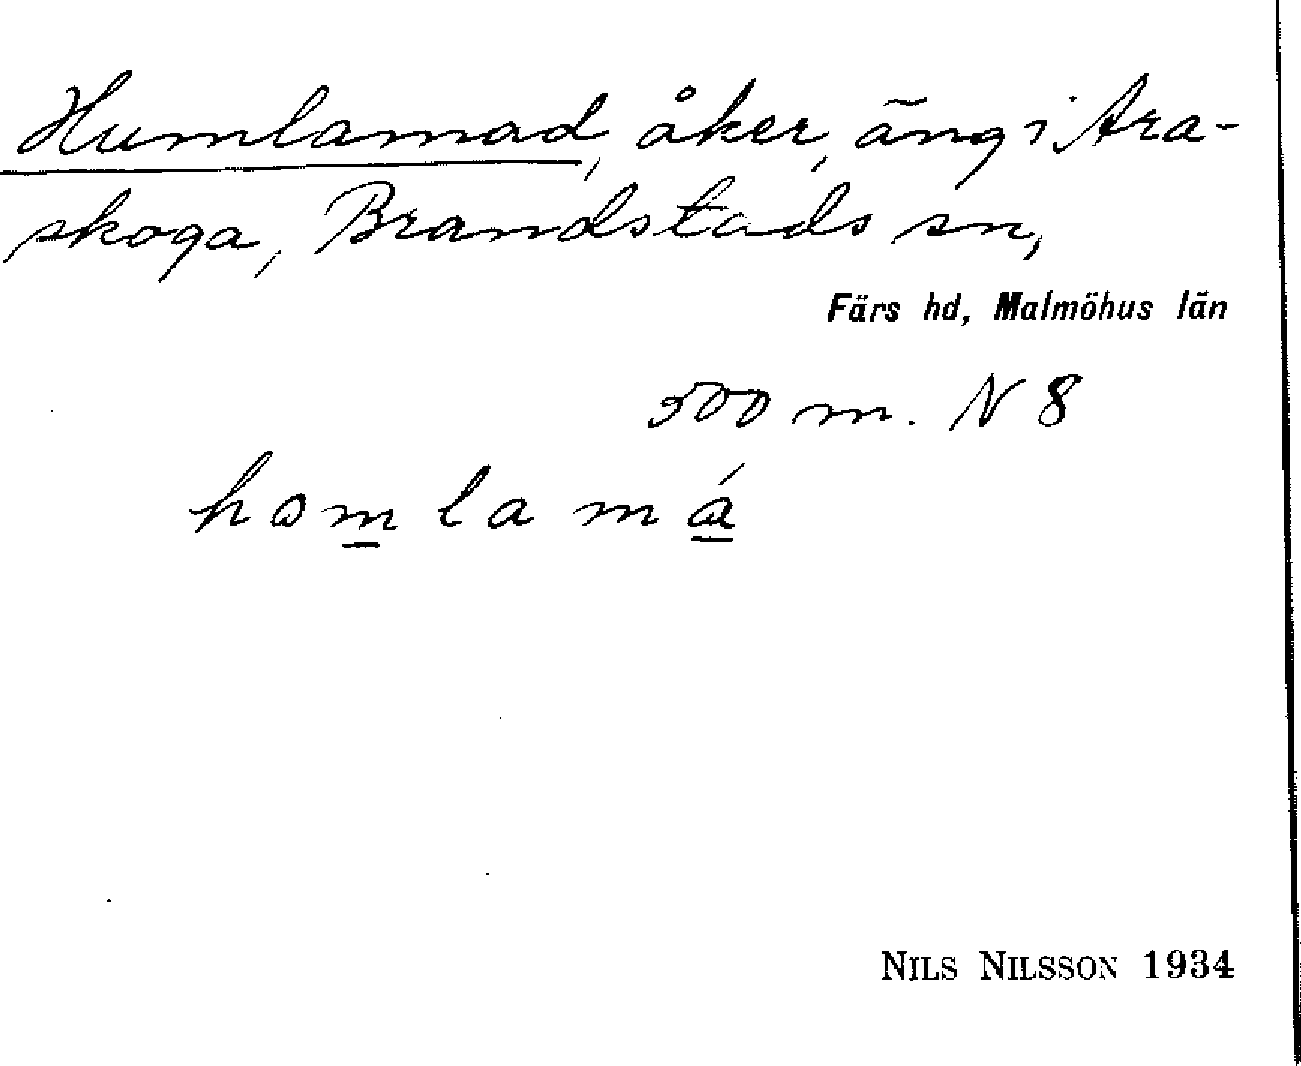 Humlamad, åker, äng i Ara-
skoga, Brandstads sn,
Färs hd, Malmöhus län
500 m. N 8
homlamá
NILS NILSSON 1934